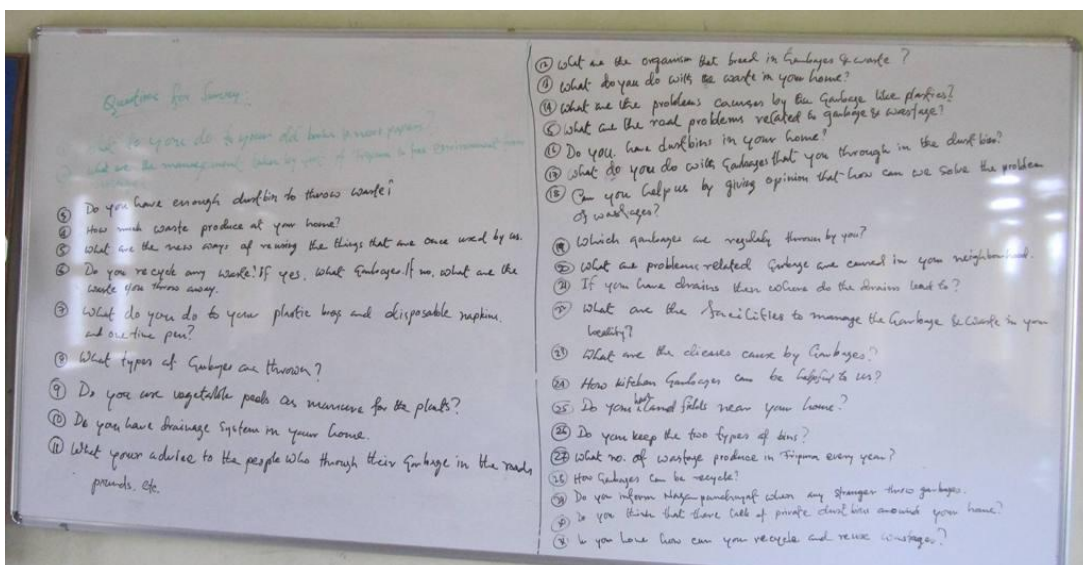 Questions for Survey:
① What do you do to your old books & news papers?
② What are the management taken by govt of Tripura to free environment from
③ Do you have enough dustbin to throw waste?
④ How much waste produce at your home?
⑤ What are the new ways of reusing the things that are once used by us.
⑥ Do you recycle any waste? If yes, what Garbages. If no, what are the
waste you throw away.
⑦ What do you do to your plastic bags and disposable napkin,
and one time pen?
⑧ What types of Garbages are thrown?
⑨ Do you use vegetable peels as manure for the plants?
⑩ Do you have drainage system in your home.
⑪ What your advice to the people who through their Garbage in the roads
ponds, etc.
⑫ What are the organism that breed in Garbages & waste ?
⑬ What do you do with the waste in your home?
⑭ What are the problems causes by the Garbage like plastics?
⑮ What are the road problems related to garbage & wastage?
⑯ Do you have dustbins in your home?
⑰ What do you do with Garbages that you through in the dust bin?
⑱ Can you help us by giving opinion that how can we solve the problem
of wastages?
⑲ Which garbages are regularly thrown by you?
⑳ What are problems related Garbage are caused in your neighbourhood.
㉑ If you have drains then where do the drains lead to?
㉒ What are the facilities to manage the Garbage & waste in your
locality?
㉓ What are the dieases cause by Garbages?
㉔ How kitchen Garbages can be helpful to us?
㉕ Do you have land fields near your home?
㉖ Do you keep the two types of bins?
㉗ What no. of wastage produce in Tripura every year?
㉘ How Garbages can be recycle?
㉙ Do you inform Nagar panchayat when any stranger throw garbages.
㉚ Do you think that there lack of private dust bins around your home?
㉛ how can you recycle and reuse wastages?